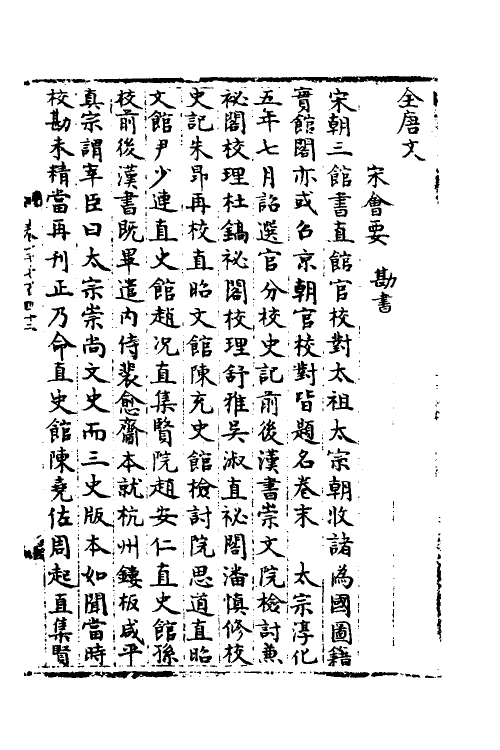 全唐文
宋會要 勘書
宋朝三館書直館官校對太祖太宗朝收諸偽國圖籍
實館閣亦或召京朝官校對皆題名卷末 太宗淳化
五年七月詔選官分校史記前後漢書崇文院檢討兼
祕閣校理杜鎬祕閣校理舒雅吳淑直祕閣潘慎修校
史記朱昂再校直昭文館陳充史館檢討阮思道直昭
文館尹少連直史館趙况直集賢院趙安仁直史館孫
校前後漢書既畢遣內侍裴愈齎本就杭州鏤板咸平
真宗謂宰臣曰太宗崇尚文史而三史版本如聞當時
校勘未精當再刊正乃命直史館陳堯佐周起直集賢